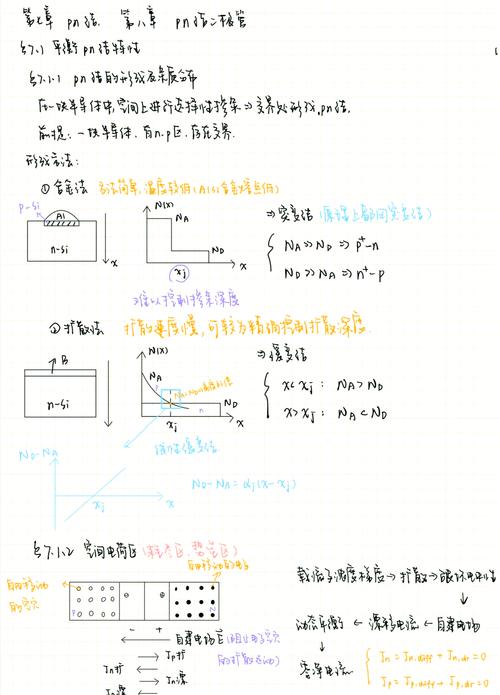 第七章 pn结. 第八章 pn结二极管
§7.1 平衡pn结特性
§7.1.1 pn结的形成及杂质分布
在一块半导体中,空间上进行选择性掺杂⇒交界处形成pn结.
前提:一块半导体、有n.p区、存在交界.
形成方法:
①合金法 方法简单,温度较低(Al-Si合金熔点低)
p-Si Al n-Si x
N(x) NA ND xj x
⇒突变结(原理上都同突变结)
NA≫ND ⇒ p⁺-n
ND≫NA ⇒ n⁺-p
难以控制掺杂深度
②扩散法 扩散速度慢,可较为精确控制扩散深度.
B n-Si x
N(x) NA ND p n xj x
⇒缓变结
x<xj: NA>ND
x>xj: NA<ND
线性缓变结
ND-NA xj x
ND-NA=αj(x-xj)
§7.1.2 空间电荷区(耗尽区、势垒区)
自由移动的空穴
自由移动的电子
P N
- +
自建电场E(阻止电子空穴的扩散运动)
Jp扩
Jn扩
Jn漂
Jp漂
载流子浓度梯度→扩散→破坏电中性
动态平衡←漂移电流←自建电场
零净电流
Jn=Jn,diff+Jn,dr=0
Jp=Jp,diff+Jp,dr=0